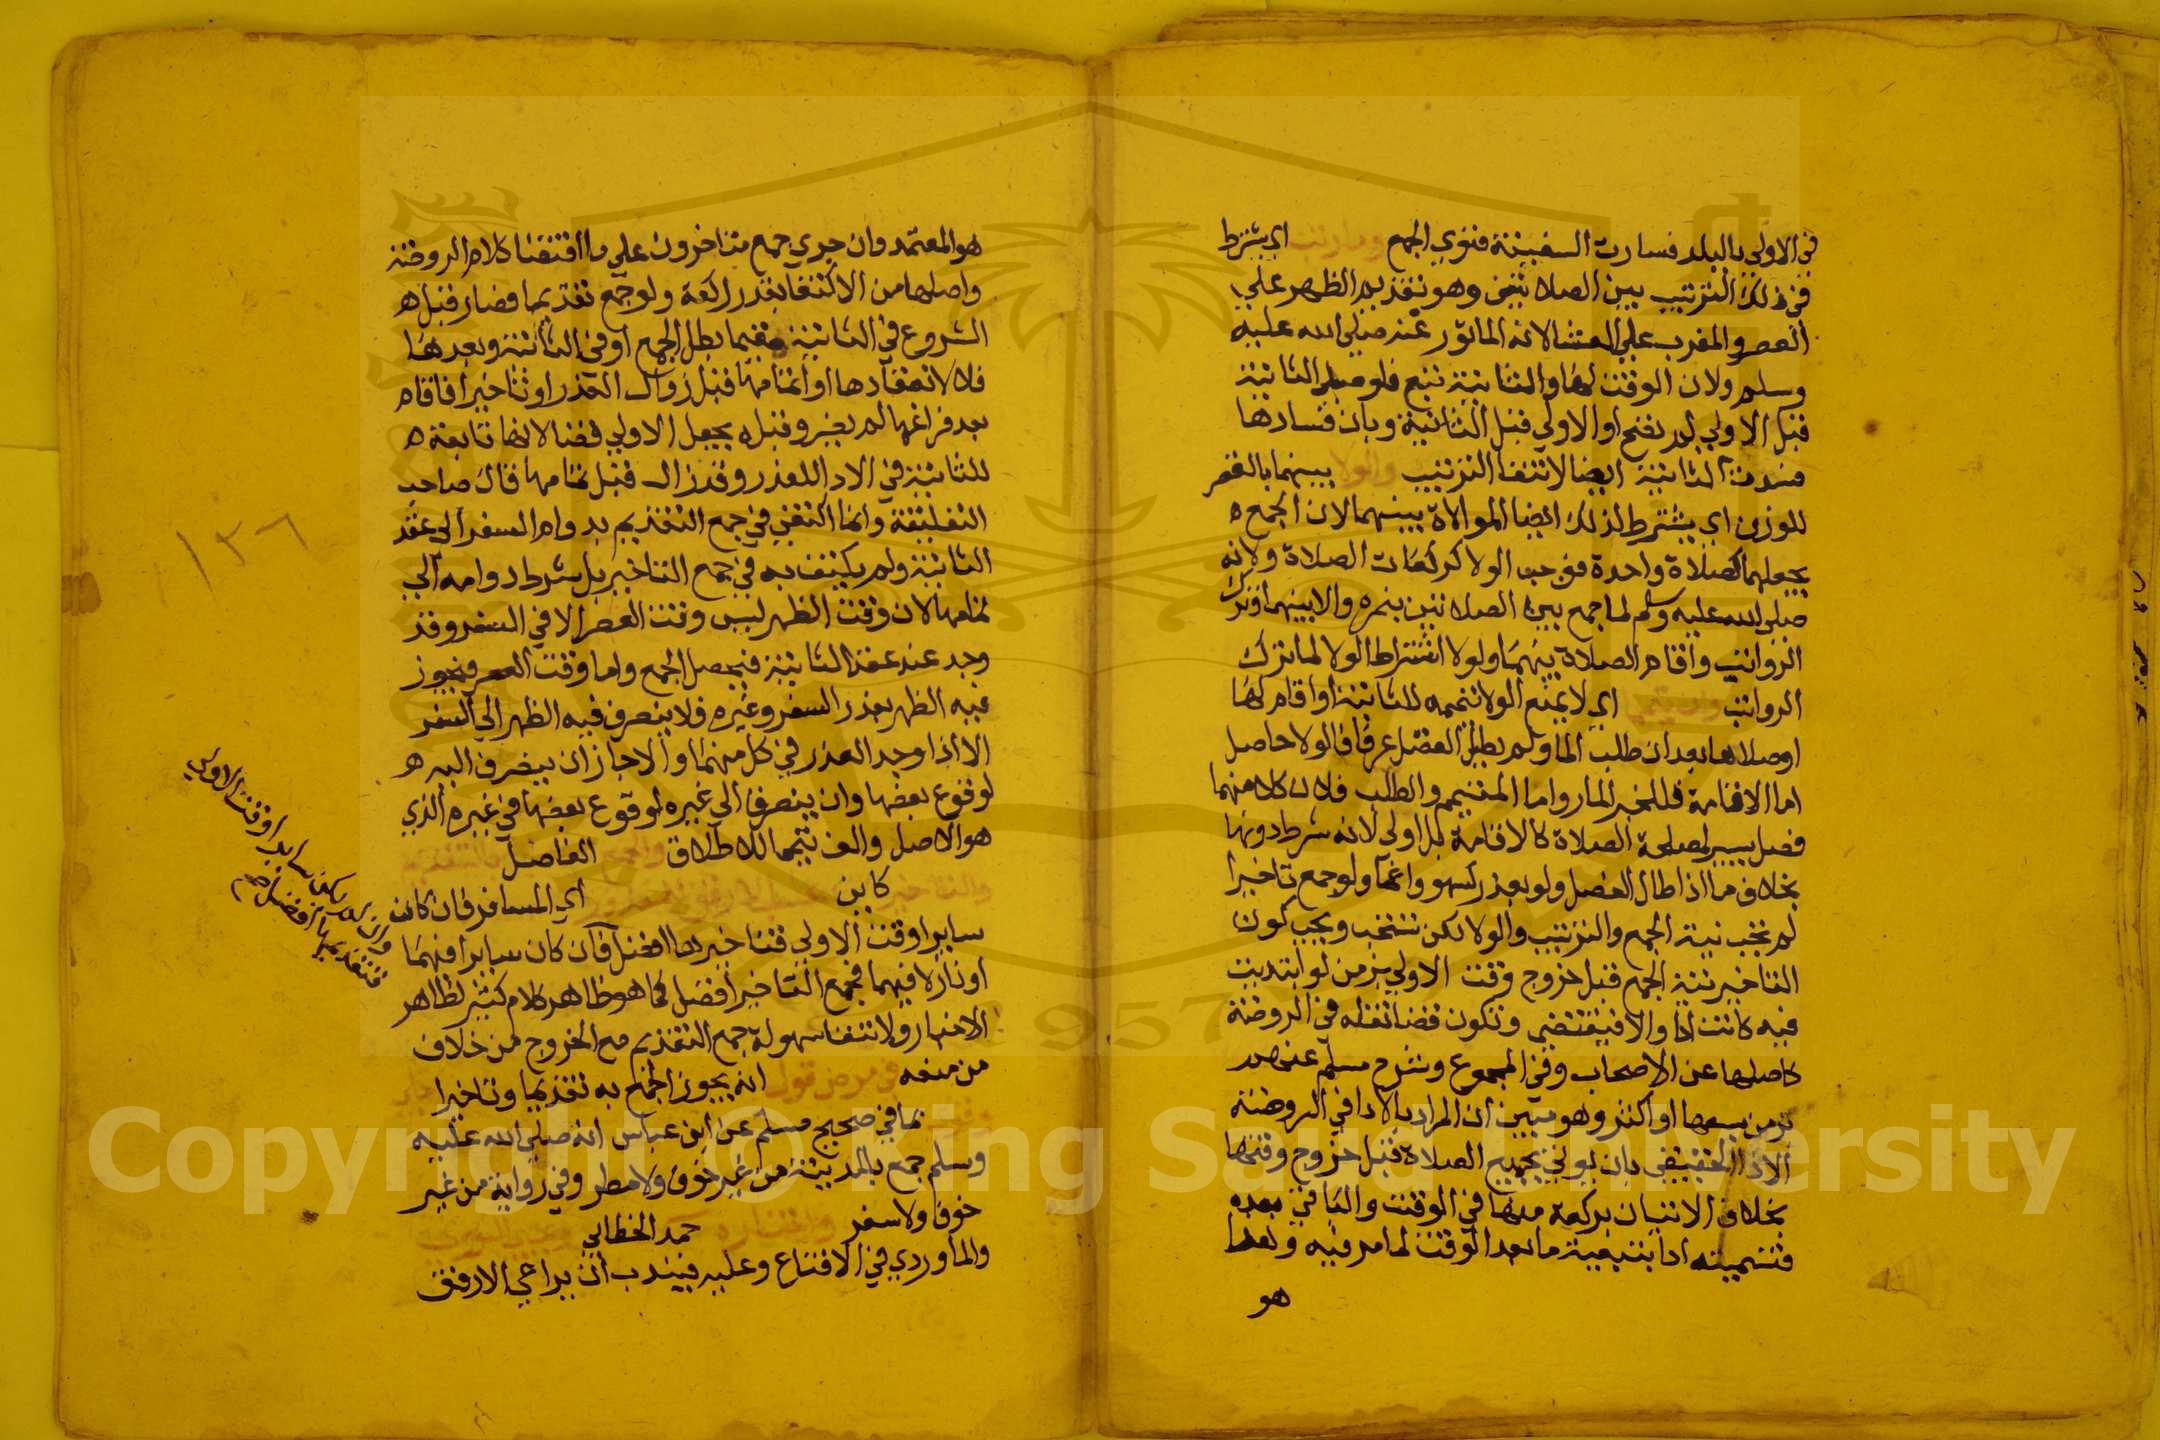 في الاولي بالبلد فسارت السفينة فنوي الجمع ومارتب اي يشترط
في ذلك الترتيب بين الصلاتين وهو تقديم الظهر علي
العصر والمغرب علي العشا لانه الماثور عنه صلي الله عليه
وسلم ولان الوقت لها والثانية تبع فلو صلي الثانية
قبل الاولي لم تصح او الاولي قبل الثانية وبان فسادها
فسدت الثانية ايضا لانتفا الترتيب والولا بينهما بالقصر
للوزن اي يشترط لذلك ايضا الموالاة بينهما لان الجمع ه
يجعلهما كصلاة واحدة فوجب الولا كركعات الصلاة ولانه
صلي الله عليه وسلم لما جمع بين الصلاتين بنمرة والا بينهما وترك
الرواتب واقام الصلاة بينهما ولولا اشتراط الولا لما ترك
الرواتب وان تيمما اي لا يمنع الولا تيممه للثانية او اقام لها
او صلاها بعد ان طلب الما ولم يطل الفصل عرفا فالولا حاصل
اما الاقامة فللخبر المار واما المتيمم والطلب فلان كلا منهما
فصل يسير لمصلحة الصلاة كالاقامة بل اولي لانه شرط دونها
بخلاف ما اذا طال الفصل ولو بعذر كسهو واغما ولو جمع تاخيرا
لم تجب نية الجمع والترتيب والولا لكن تستحب ويجب كون
التاخير بنية الجمع قبل خروج وقت الاولي بزمن لو ابتديت
فيه كانت ادا والا فيقتضي وتكون قضا نقله في الروضة
كاصلها عن الاصحاب وفي المجموع وشرح مسلم عنهم
بزمن يسعها او اكثر وهو مبين ان المراد بالادا في الروضة
الادا الحقيقي بان يولي بجميع الصلاة قبل خروج وقتها
بخلاف الاتيان بركعة منها في الوقت والباقي بعده
فتسميته ادا بتبعية ما بعد الوقت لما مر فيه وبعدها
هو
هو المعتمد وان جري جمع متاخرون علي ما اقتضنا كلام الروضة
واصلها من الاكتفا بقدر ركعة ولو جمع تقديما فصار قبل ه
الشروع في الثانية مقيما بطل الجمع او في الثانية وبعدها
فلا لانعقادها او اتمامها قبل زوال العذر او تاخيرا فاقام
بعد فراغهما لم يضر وقبله يجعل الاولي قضا لانها تابعة ه
للثانية في الادا للعذر وقد زال قبل تمامها قال صاحب
التعليقة وانما اكتفي في جمع التقديم بدوام السفر الي عقد
الثانية ولم يكتف به في جمع التاخير بل شرط دوامه الي
تمامها لان وقت الظهر ليس وقت العصر الا في السفر وقد
وجد عند عقد الثانية فيحصل الجمع واما وقت العصر فيجوز
فيه الظهر بعذر السفر وغيره فلا ينصرف فيه الظهر الي السفر
الا اذا وجد العذر في كل منهما والا جاز ان ينصرف اليه ه
لوقوع بعضها وان ينصرف الي غيره لوقوع بعضها في غيره الذي
هو الاصل والف تيمما للاطلاق والجمع بالتقديم
والتاخير كاين الفاضل
اي المسافر فان كان
سايرا وقت الاولي فتاخيرها افضل فان كان سايرا فيهما
او نازلا فيهما فجمع التاخير افضل كما هو ظاهر كلام كثير لظاهر
الاخبار ولانتفا سهولة جمع التقديم مع الخروج من خلاف
من منعه في مرض قول انه يجوز الجمع به تقديما وتاخيرا
لما في صحيح مسلم عن ابن عباس انه صلي الله عليه
وسلم جمع بالمدينة من غير خوف ولا مطر وفي رواية من غير
خوف ولا سفر واختاره حمد الخطابي
والماوردي في الاقناع وعليه فيندب ان يراعي الارفق
وان لم يكن سايرا وقت الاولي
فتقديمها افضل صح
١٣٦
Copyright © King Saud University
1957